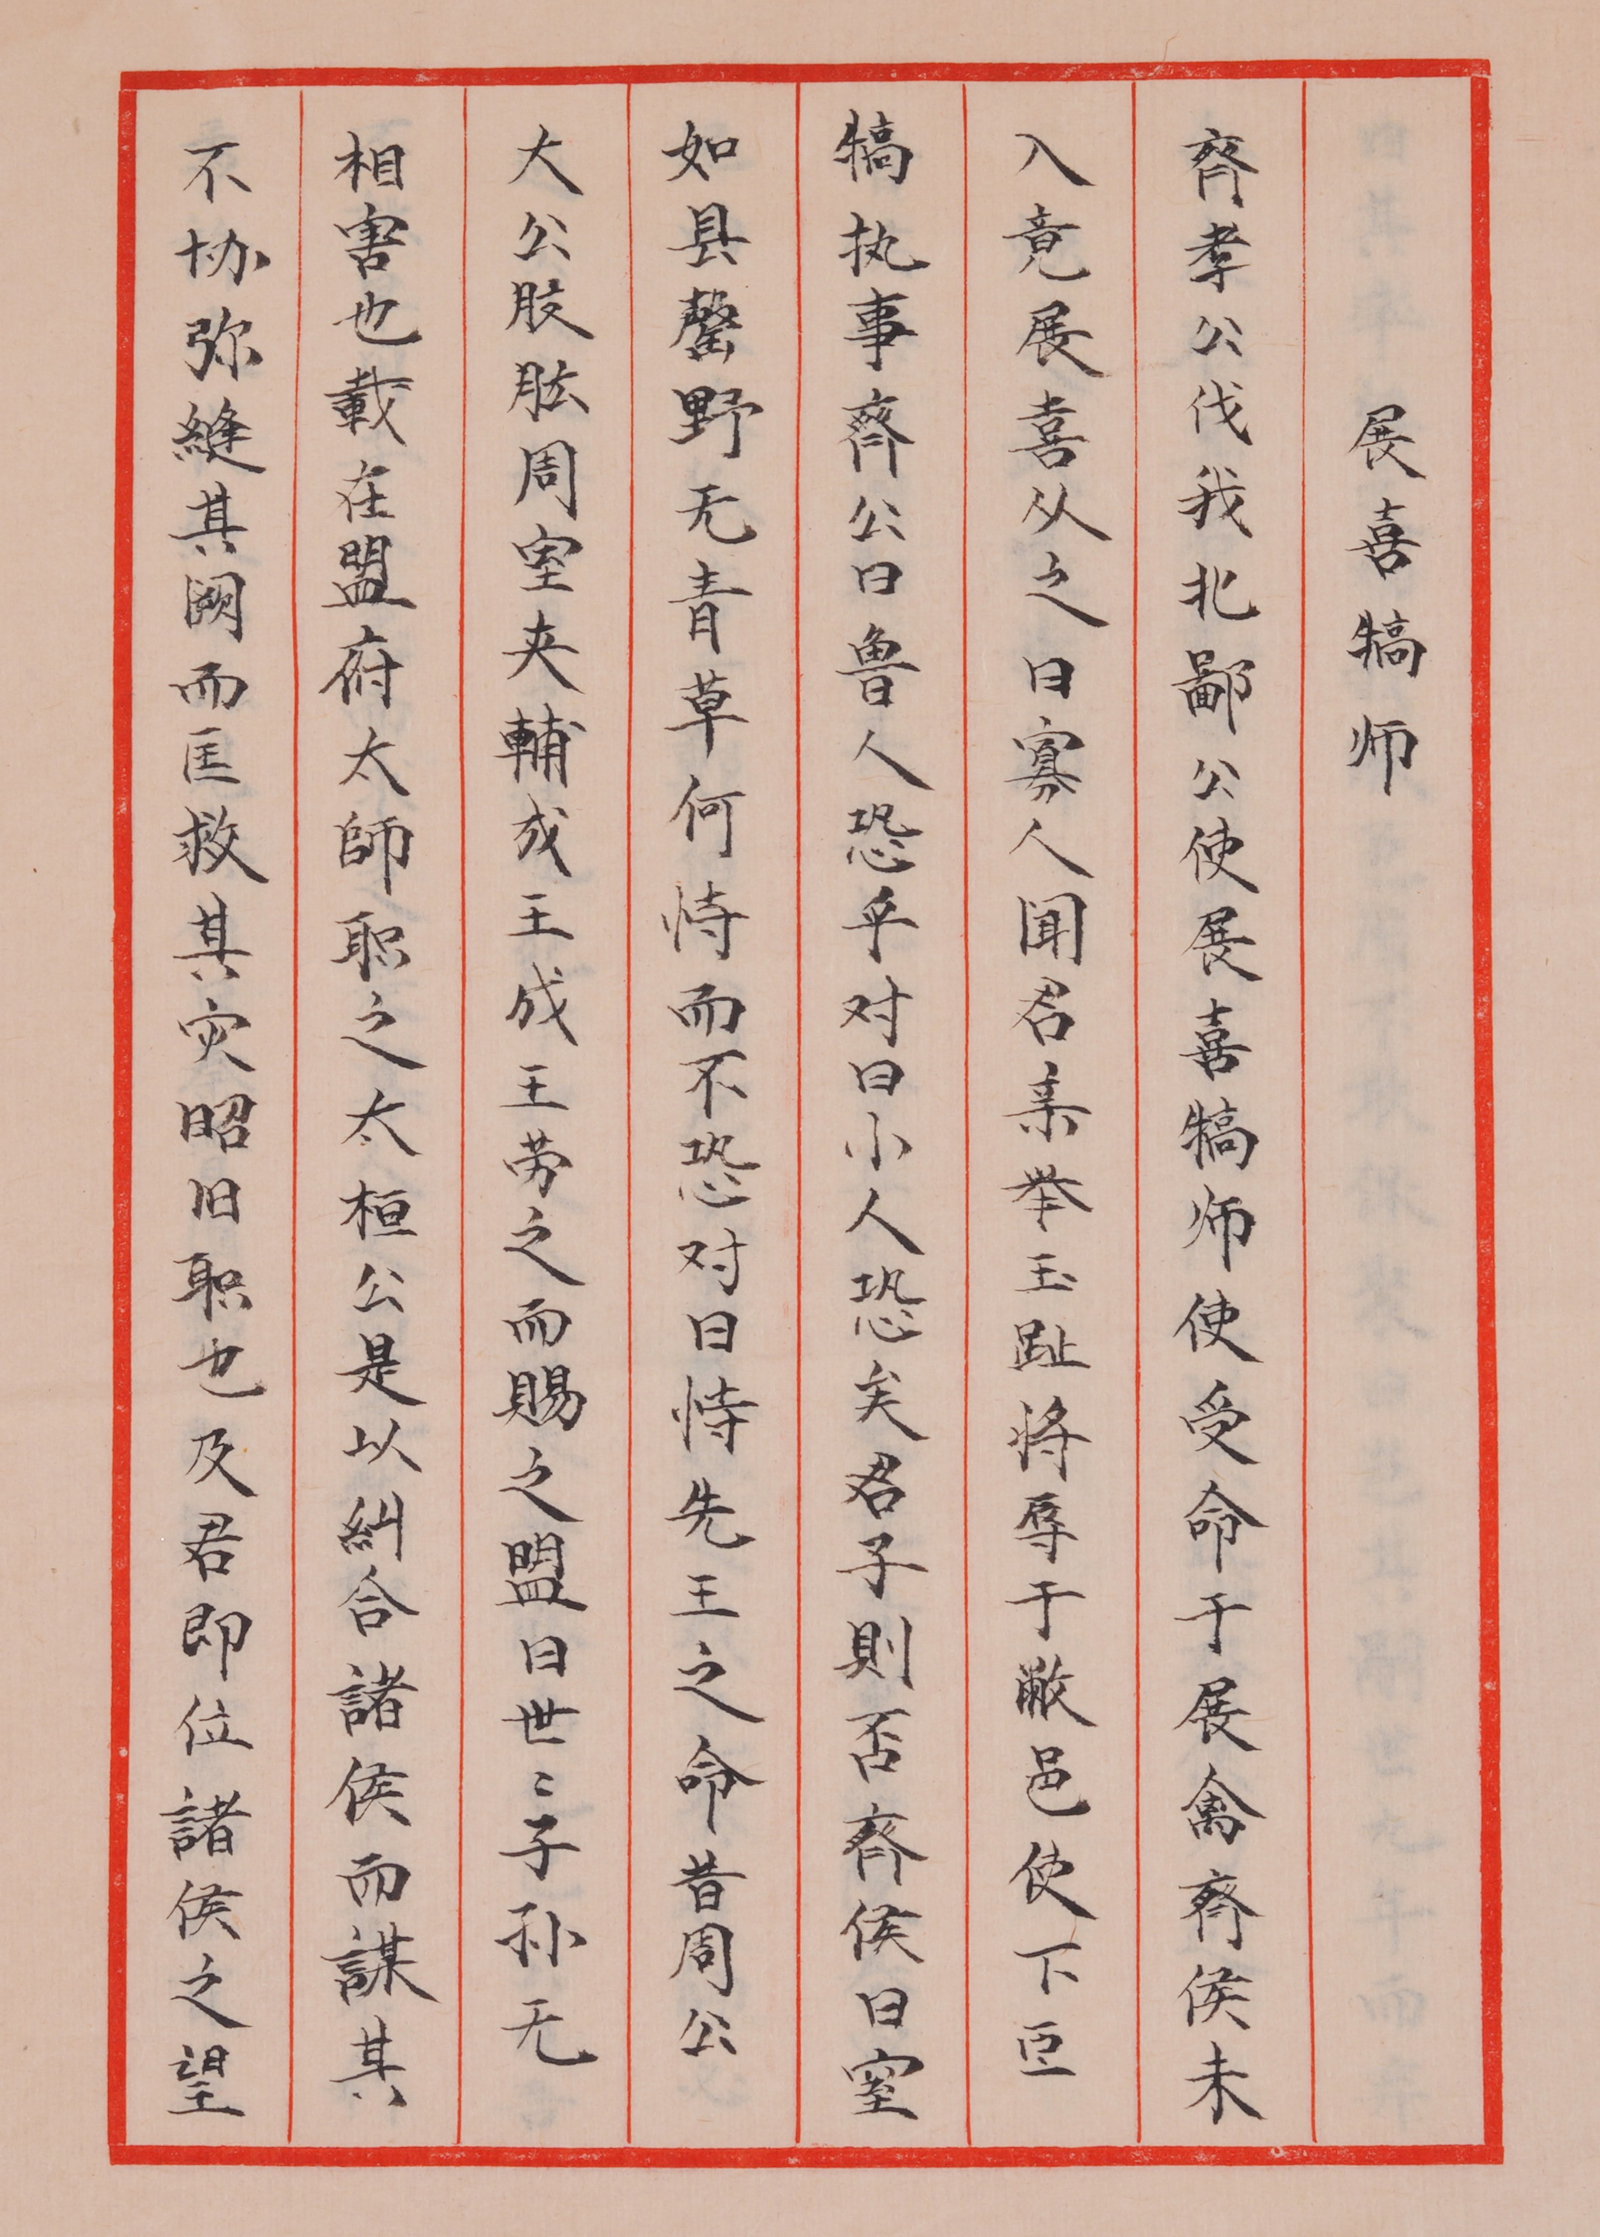 展喜犒师
齊孝公伐我北鄙公使展喜犒师使受命于展禽齊侯未
入竟展喜从之曰寡人闻君亲举玉趾将辱于敝邑使下臣
犒执事齊公曰鲁人恐乎对曰小人恐矣君子則否齊侯曰室
如县罄野无青草何恃而不恐对曰恃先王之命昔周公
大公股肱周室夹輔成王成王劳之而賜之盟曰世〻子孙无
相害也載在盟府太師职之太桓公是以糾合諸侯而謀其
不协弥縫其阙而匡救其灾昭旧职也及君即位諸侯之望